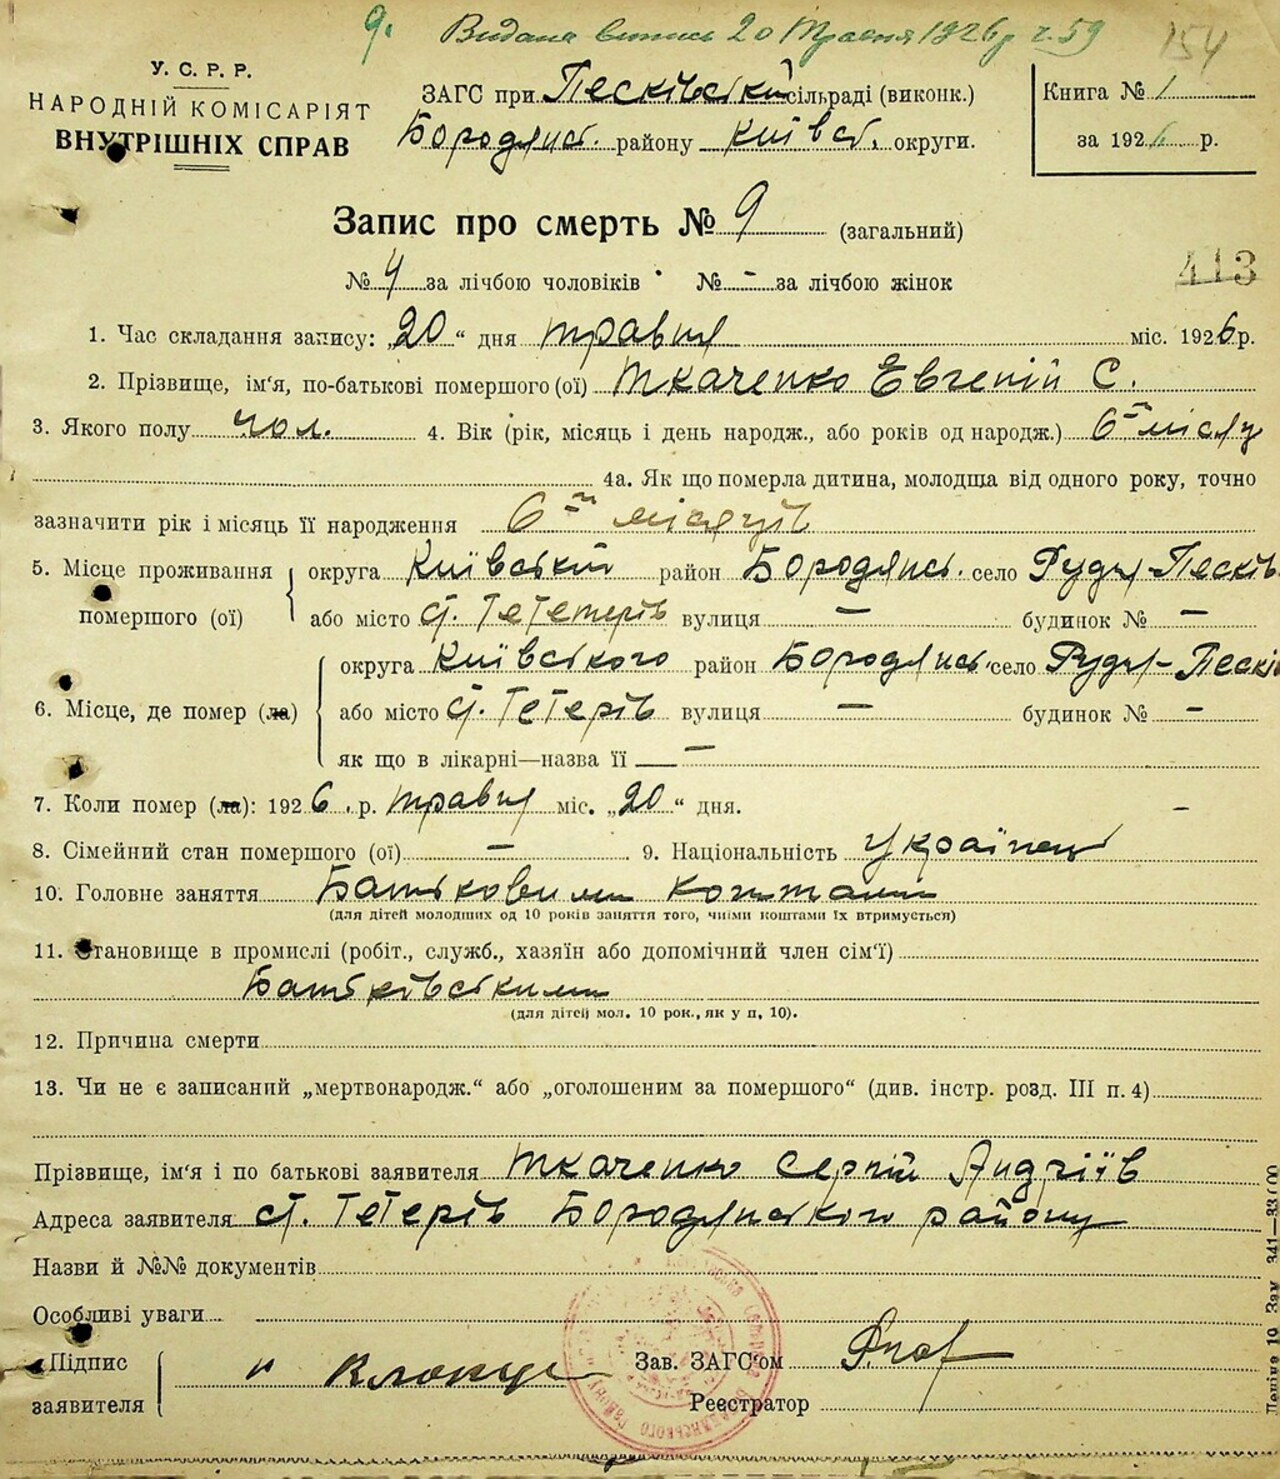 9. Видана випись 20 Травня 1926 р ч. 59
154
У. С. Р. Р.
НАРОДНІЙ КОМІСАРІЯТ
ВНУТРІШНІХ СПРАВ
ЗАГС при Песківській сільраді (виконк.)
Бородянс. району Київс. округи.
Книга № 1
за 1926 р.
Запис про смерть № 9 (загальний)
№ 4 за лічбою чоловіків № - за лічбою жінок
413
1. Час складання запису: „20“ дня травня міс. 1926 р.
2. Прізвище, ім'я, по-батькові помершого (ої) Ткаченко Евгеній С.
3. Якого полу чол. 4. Вік (рік, місяць і день народж., або років од народж.) 6
4а. Як що померла дитина, молодша від одного року, точно
зазначити рік і місяць її народження 6 місяців
5. Місце проживання помершого (ої) округа Київській район Бородянсь. село Рудня-Песків.
або місто ст. Тетерів вулиця — будинок № —
6. Місце, де помер (ла) округа Київського район Бородянсь. село Рудня-Пескі
або місто ст. Тетерів вулиця — будинок № —
як що в лікарні—назва її —
7. Коли помер (ла): 1926. р. травня міс. „20“ дня. —
8. Сімейний стан помершого (ої) — 9. Національність Українець
10. Головне заняття Батьковими коштами
(для дітей молодших од 10 років заняття того, чиїми коштами їх втримується)
11. Становище в промислі (робіт., служб., хазяїн або допомічний член сім'ї)
Батьківськими
(для дітей мол. 10 рок., як у п, 10).
12. Причина смерти
13. Чи не є записаний „мертвонародж.“ або „оголошеним за помершого“ (див. інстр. розд. III п. 4)
Прізвище, ім'я і по батькові заявителя Ткаченко Сергій Андріїв
Адреса заявителя ст. Тетерів Бородянського району
Назви й №№ документів
Особливі уваги
Підпис заявителя
Зав. ЗАГС'ом
Реєстратор